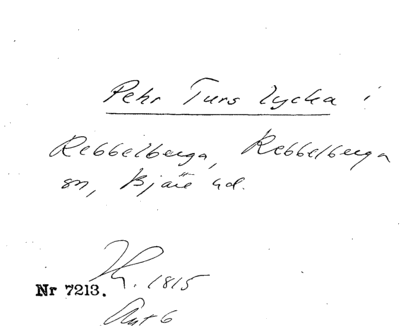 Pehr Turs lycka i
Rebbelberga, Rebbelberga
sn, Bjäre hd.
1815
Nr 7213.
Ant 6